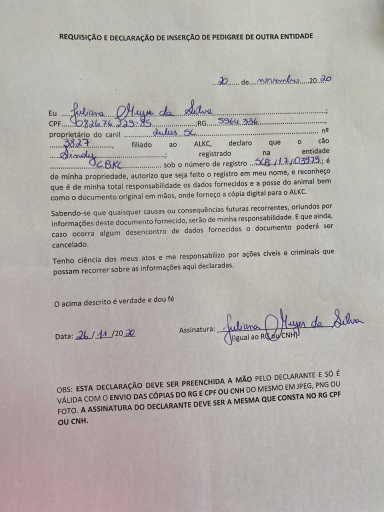 REQUISIÇÃO E DECLARAÇÃO DE INSERÇÃO DE PEDIGREE DE OUTRA ENTIDADE
20 de novembro 20 20
Eu Juliana Meyer da Silva ;
CPF 082676.229-85 RG 5964.336 ,
proprietário do canil Lulus SC nº
3827, filiado ao ALKC, declaro que o cão
; registrado na entidade
CBKC sob o número de registro SCB/17/03975; é
de minha propriedade, autorizo que seja feito o registro em meu nome, e reconheço
que é de minha total responsabilidade os dados fornecidos e a posse do animal bem
como o documento original em mãos, onde forneço a cópia digital para o ALKC.
Sabendo-se que quaisquer causas ou consequências futuras recorrentes, oriundos por
informações deste documento fornecido, serão de minha responsabilidade. E que ainda,
caso ocorra algum desencontro de dados fornecidos o documento poderá ser
cancelado.
Tenho ciência dos meus atos e me responsabilizo por ações cíveis e criminais que
possam recorrer sobre as informações aqui declaradas.
O acima descrito é verdade e dou fé
Data: 26/11/2020 Assinatura: Juliana Meyer da Silva
(Igual ao RG ou CNH)
OBS: ESTA DECLARAÇÃO DEVE SER PREENCHIDA A MÃO PELO DECLARANTE E SÓ É
VÁLIDA COM O ENVIO DAS CÓPIAS DO RG E CPF OU CNH DO MESMO EM JPEG, PNG OU
FOTO. A ASSINATURA DO DECLARANTE DEVE SER A MESMA QUE CONSTA NO RG CPF
OU CNH.